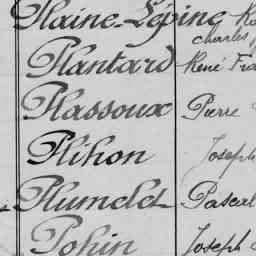 Plaine-Lépine
charles
Plantard René
Plassoux Pierre
Plihon Joseph
Plumelet Pascal
Pohin Joseph